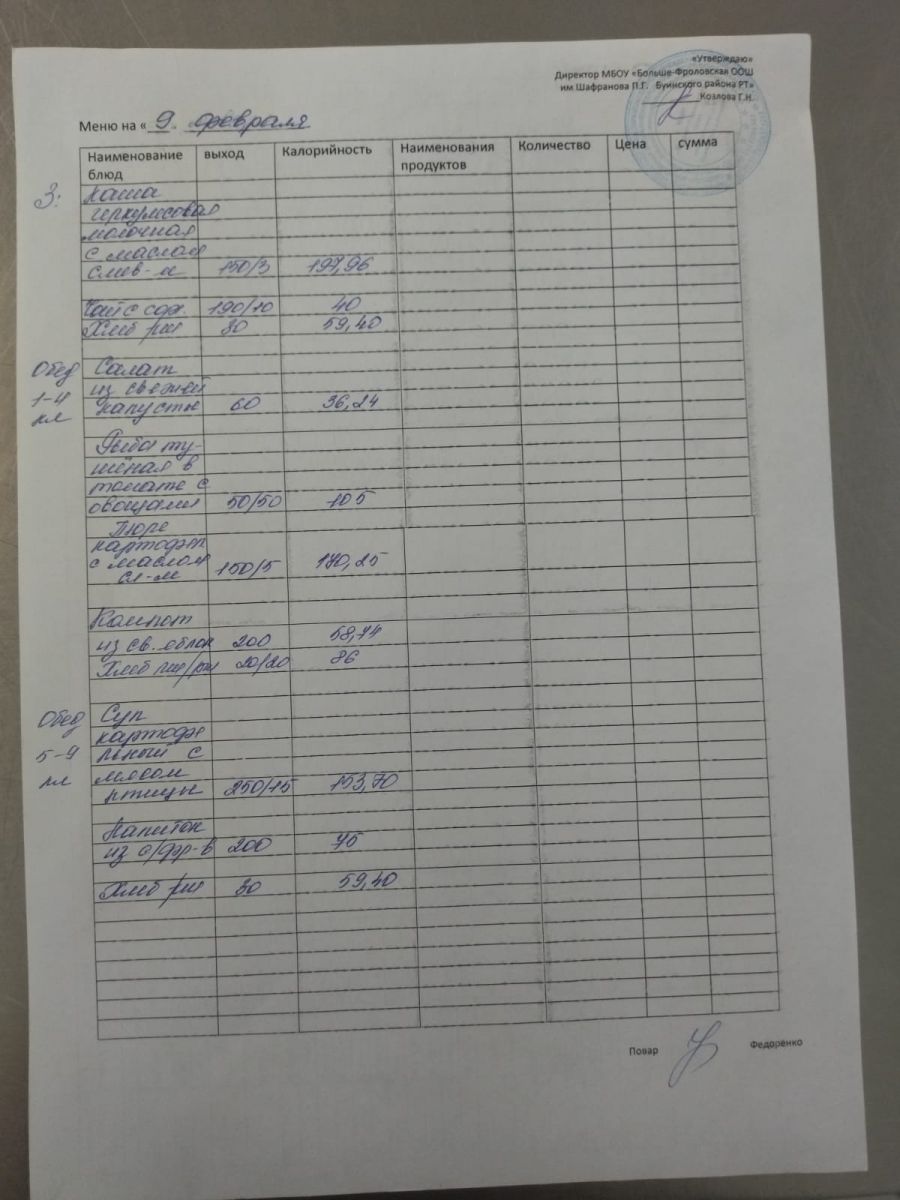 «Утверждаю»
Директор МБОУ «Больше-Фроловская ООШ
им Шафранова П.Г. Буинского района РТ»
Козлова Г.Н.
Меню на « 9. февраля
Наименование блюд выход Калорийность Наименования продуктов Количество Цена сумма
З: Каша
геркулесовая
молочная
с маслом
слив-м 150/3 197,96
Чай с сах. 190/10 40
Хлеб рж 30 59,40
Обед Салат
1-4 из свежей
кл капусты 60 36,24
Рыба ту-
шеная в
томате с
овощами 50/50 105
Пюре
картофен
с маслом
сл-м 150/5 170,25
Компот
из св. яблок 200 58,74
Хлеб пш/рж 20/20 86
Обед Суп
картофе
5-9 льный с
кл мясом
птицы 250/15 153,70
Напиток
из с/фр-в 200 75
Хлеб рж 30 59,40
Повар Федоренко